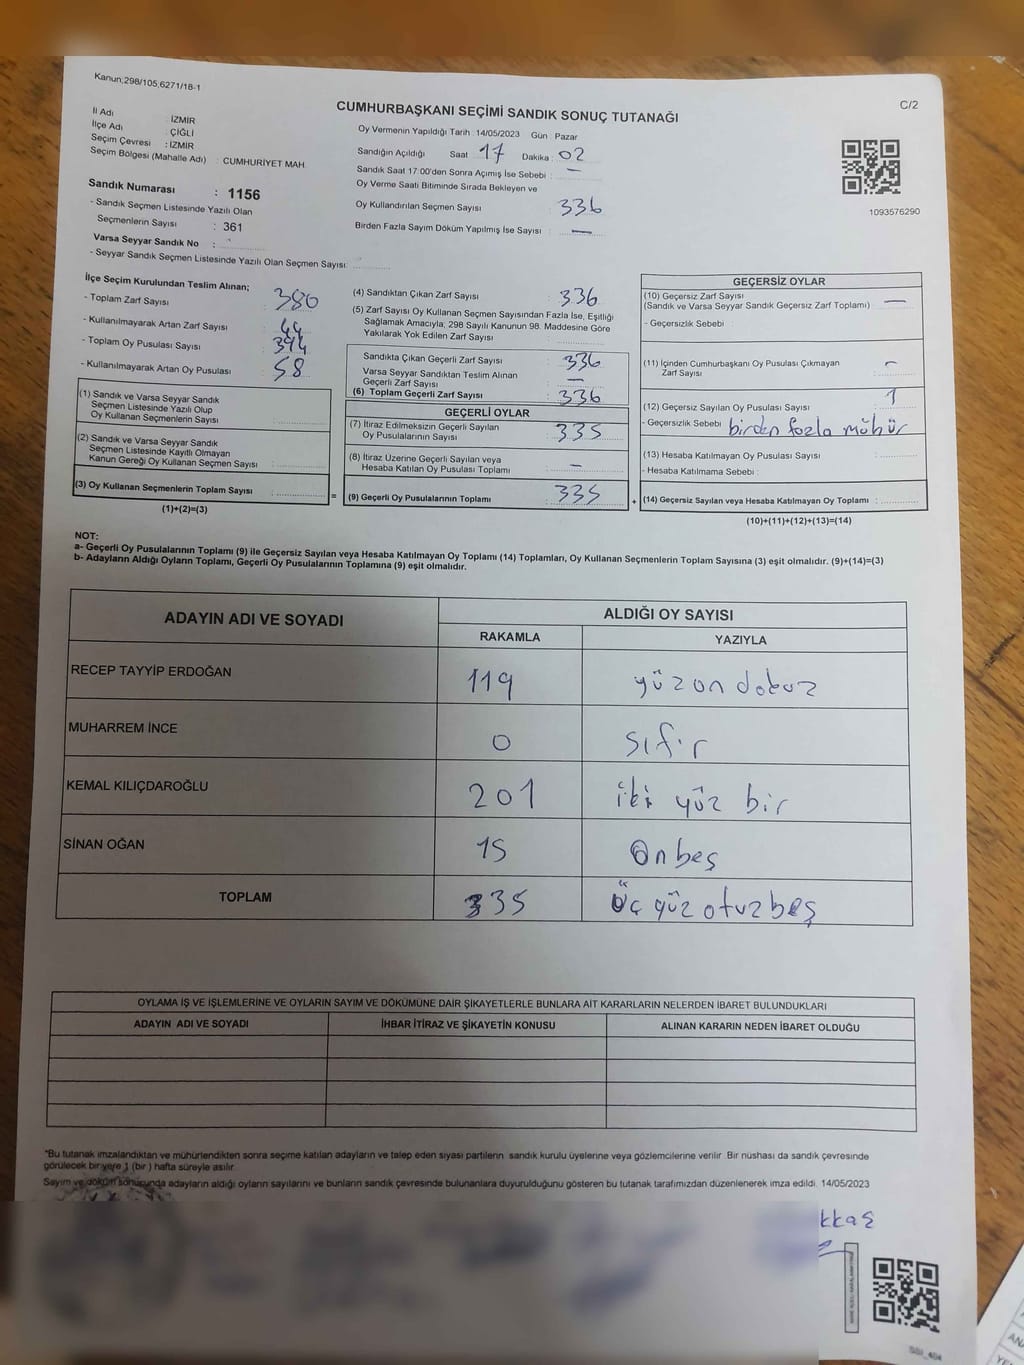 Kanun;298/105,6271/18-1
C/2
CUMHURBAŞKANI SEÇİMİ SANDIK SONUÇ TUTANAĞI
İl Adı : İZMİR
İlçe Adı : ÇİĞLİ
Seçim Çevresi : İZMİR
Seçim Bölgesi (Mahalle Adı) : CUMHURİYET MAH.
Sandık Numarası : 1156
- Sandık Seçmen Listesinde Yazılı Olan
Seçmenlerin Sayısı : 361
Varsa Seyyar Sandık No :
- Seyyar Sandık Seçmen Listesinde Yazılı Olan Seçmen Sayısı:
Oy Vermenin Yapıldığı Tarih : 14/05/2023 Gün Pazar
Sandığın Açıldığı Saat 17 Dakika : 02
Sandık Saat 17:00'den Sonra Açımış İse Sebebi : —
Oy Verme Saati Bitiminde Sırada Bekleyen ve
Oy Kullandırılan Seçmen Sayısı : 336
Birden Fazla Sayım Döküm Yapılmış İse Sayısı : —
1093576290
İlçe Seçim Kurulundan Teslim Alınan;
- Toplam Zarf Sayısı : 380
- Kullanılmayarak Artan Zarf Sayısı : 44
- Toplam Oy Pusulası Sayısı : 394
- Kullanılmayarak Artan Oy Pusulası : 58
(1) Sandık ve Varsa Seyyar Sandık
Seçmen Listesinde Yazılı Olup
Oy Kullanan Seçmenlerin Sayısı :
(2) Sandık ve Varsa Seyyar Sandık
Seçmen Listesinde Kayıtlı Olmayan
Kanun Gereği Oy Kullanan Seçmen Sayısı :
(3) Oy Kullanan Seçmenlerin Toplam Sayısı : =
(1)+(2)=(3)
(4) Sandıktan Çıkan Zarf Sayısı : 336
(5) Zarf Sayısı Oy Kullanan Seçmen Sayısından Fazla İse, Eşitliği
Sağlamak Amacıyla, 298 Sayılı Kanunun 98. Maddesine Göre
Yakılarak Yok Edilen Zarf Sayısı :
Sandıkta Çıkan Geçerli Zarf Sayısı : 336
Varsa Seyyar Sandıktan Teslim Alınan
Geçerli Zarf Sayısı : —
(6) Toplam Geçerli Zarf Sayısı : 336
GEÇERLİ OYLAR
(7) İtiraz Edilmeksizin Geçerli Sayılan
Oy Pusulalarının Sayısı : 335
(8) İtiraz Üzerine Geçerli Sayılan veya
Hesaba Katılan Oy Pusulası Toplamı : —
(9) Geçerli Oy Pusulalarının Toplamı : 335 +
GEÇERSİZ OYLAR
(10) Geçersiz Zarf Sayısı
(Sandık ve Varsa Seyyar Sandık Geçersiz Zarf Toplamı) : —
- Geçersizlik Sebebi
(11) İçinden Cumhurbaşkanı Oy Pusulası Çıkmayan
Zarf Sayısı : —
(12) Geçersiz Sayılan Oy Pusulası Sayısı : 1
- Geçersizlik Sebebi birden fazla mühür
(13) Hesaba Katılmayan Oy Pusulası Sayısı :
- Hesaba Katılmama Sebebi :
(14) Geçersiz Sayılan veya Hesaba Katılmayan Oy Toplamı :
(10)+(11)+(12)+(13)=(14)
NOT:
a- Geçerli Oy Pusulalarının Toplamı (9) ile Geçersiz Sayılan veya Hesaba Katılmayan Oy Toplamı (14) Toplamları, Oy Kullanan Seçmenlerin Toplam Sayısına (3) eşit olmalıdır. (9)+(14)=(3)
b- Adayların Aldığı Oyların Toplamı, Geçerli Oy Pusulalarının Toplamına (9) eşit olmalıdır.
ADAYIN ADI VE SOYADI
ALDIĞI OY SAYISI
RAKAMLA YAZIYLA
RECEP TAYYİP ERDOĞAN 119 yüz on dokuz
MUHARREM İNCE 0 sıfır
KEMAL KILIÇDAROĞLU 201 iki yüz bir
SİNAN OĞAN 15 Onbeş
TOPLAM 335 Üç yüz otuz beş
OYLAMA İŞ VE İŞLEMLERİNE VE OYLARIN SAYIM VE DÖKÜMÜNE DAİR ŞİKAYETLERLE BUNLARA AİT KARARLARIN NELERDEN İBARET BULUNDUKLARI
ADAYIN ADI VE SOYADI İHBAR İTİRAZ VE ŞİKAYETİN KONUSU ALINAN KARARIN NEDEN İBARET OLDUĞU
*Bu tutanak imzalandıktan ve mühürlendikten sonra seçime katılan adayların ve talep eden siyasi partilerin sandık kurulu üyelerine veya gözlemcilerine verilir. Bir nüshası da sandık çevresinde
görülecek bir yere 1 (bir) hafta süreyle asılır.
Sayım ve döküm sonucunda adayların aldığı oyların sayılarını ve bunların sandık çevresinde bulunanlara duyurulduğunu gösteren bu tutanak tarafımızdan düzenlenerek imza edildi. 14/05/2023
kkaş